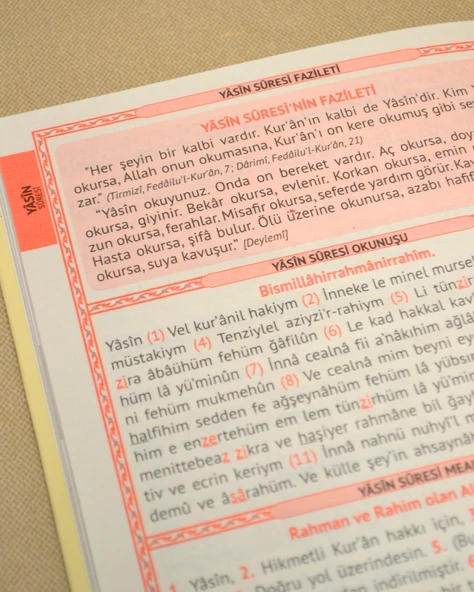 YÂSÎN SÛRESİ FAZİLETİ
YÂSÎN SÛRESİ'NİN FAZİLETİ
"Her şeyin bir kalbi vardır. Kur'ân'ın kalbi de Yâsîn'dir. Kim Y
okursa, Allah onun okumasına, Kur'ân'ı on kere okumuş gibi se
zar." (Tirmizî, Fedâilu'l-Kur'ân, 7; Dârimî, Fedâilu'l-Kur'ân, 21)
"Yâsîn okuyunuz. Onda on bereket vardır. Aç okursa, doy
okursa, giyinir. Bekâr okursa, evlenir. Korkan okursa, emin
zun okursa, ferahlar. Misafir okursa, seferde yardım görür. Ka
Hasta okursa, şifâ bulur. Ölü üzerine okunursa, azabı hafif
okursa, suya kavuşur." [Deylemî]
YÂSÎN SÛRESİ
YÂSÎN SÛRESİ OKUNUŞU
Bismillâhirrahmânirrahîm.
Yâsîn (1) Vel kur'ânil hakiym (2) İnneke le minel mursel
müstakiym (4) Tenziylel aziyzi'r-rahiym (5) Li tünzir
zira âbâühüm fehüm ğâfilûn (6) Le kad hakkal kav
hüm lâ yü'minûn (7) İnnâ cealnâ fii a'nâkıhim ağlâ
ni fehüm mukmehûn (8) Ve cealnâ mim beyni ey
halfihim sedden fe ağşeynâhum fehüm lâ yübs
him e enzertehüm em lem tünzirhüm lâ yü'min
menittebeaz zikra ve haşiyer rahmâne bil ğay
tiv ve ecrin keriym (11) İnnâ nahnü nuhyi'l
demû ve âsârahüm. Ve külle şey'in ahsaynâ
YÂSÎN SÛRESİ MEA
Rahman ve Rahim olan Al
1. Yâsîn, 2. Hikmetli Kur'ân hakkı için,
Doğru yol üzerindesin. 5. (Bu
indirilmiştir.